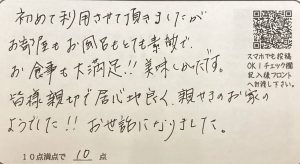 初めて利用させて頂きましたが
お部屋もお風呂もとても素敵で、
お食事も大満足!!美味しかったです。
皆様親切で居心地良く、親せきのお家の
ようでした!!お世話になりました。
10点満点で 10 点
スマホでも投稿
OK!チェック欄
記入後フロント
へお渡し下さい。